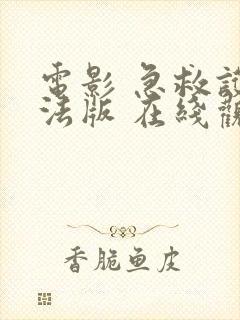 電影 急救
法版 在綫觀
香脆鱼皮